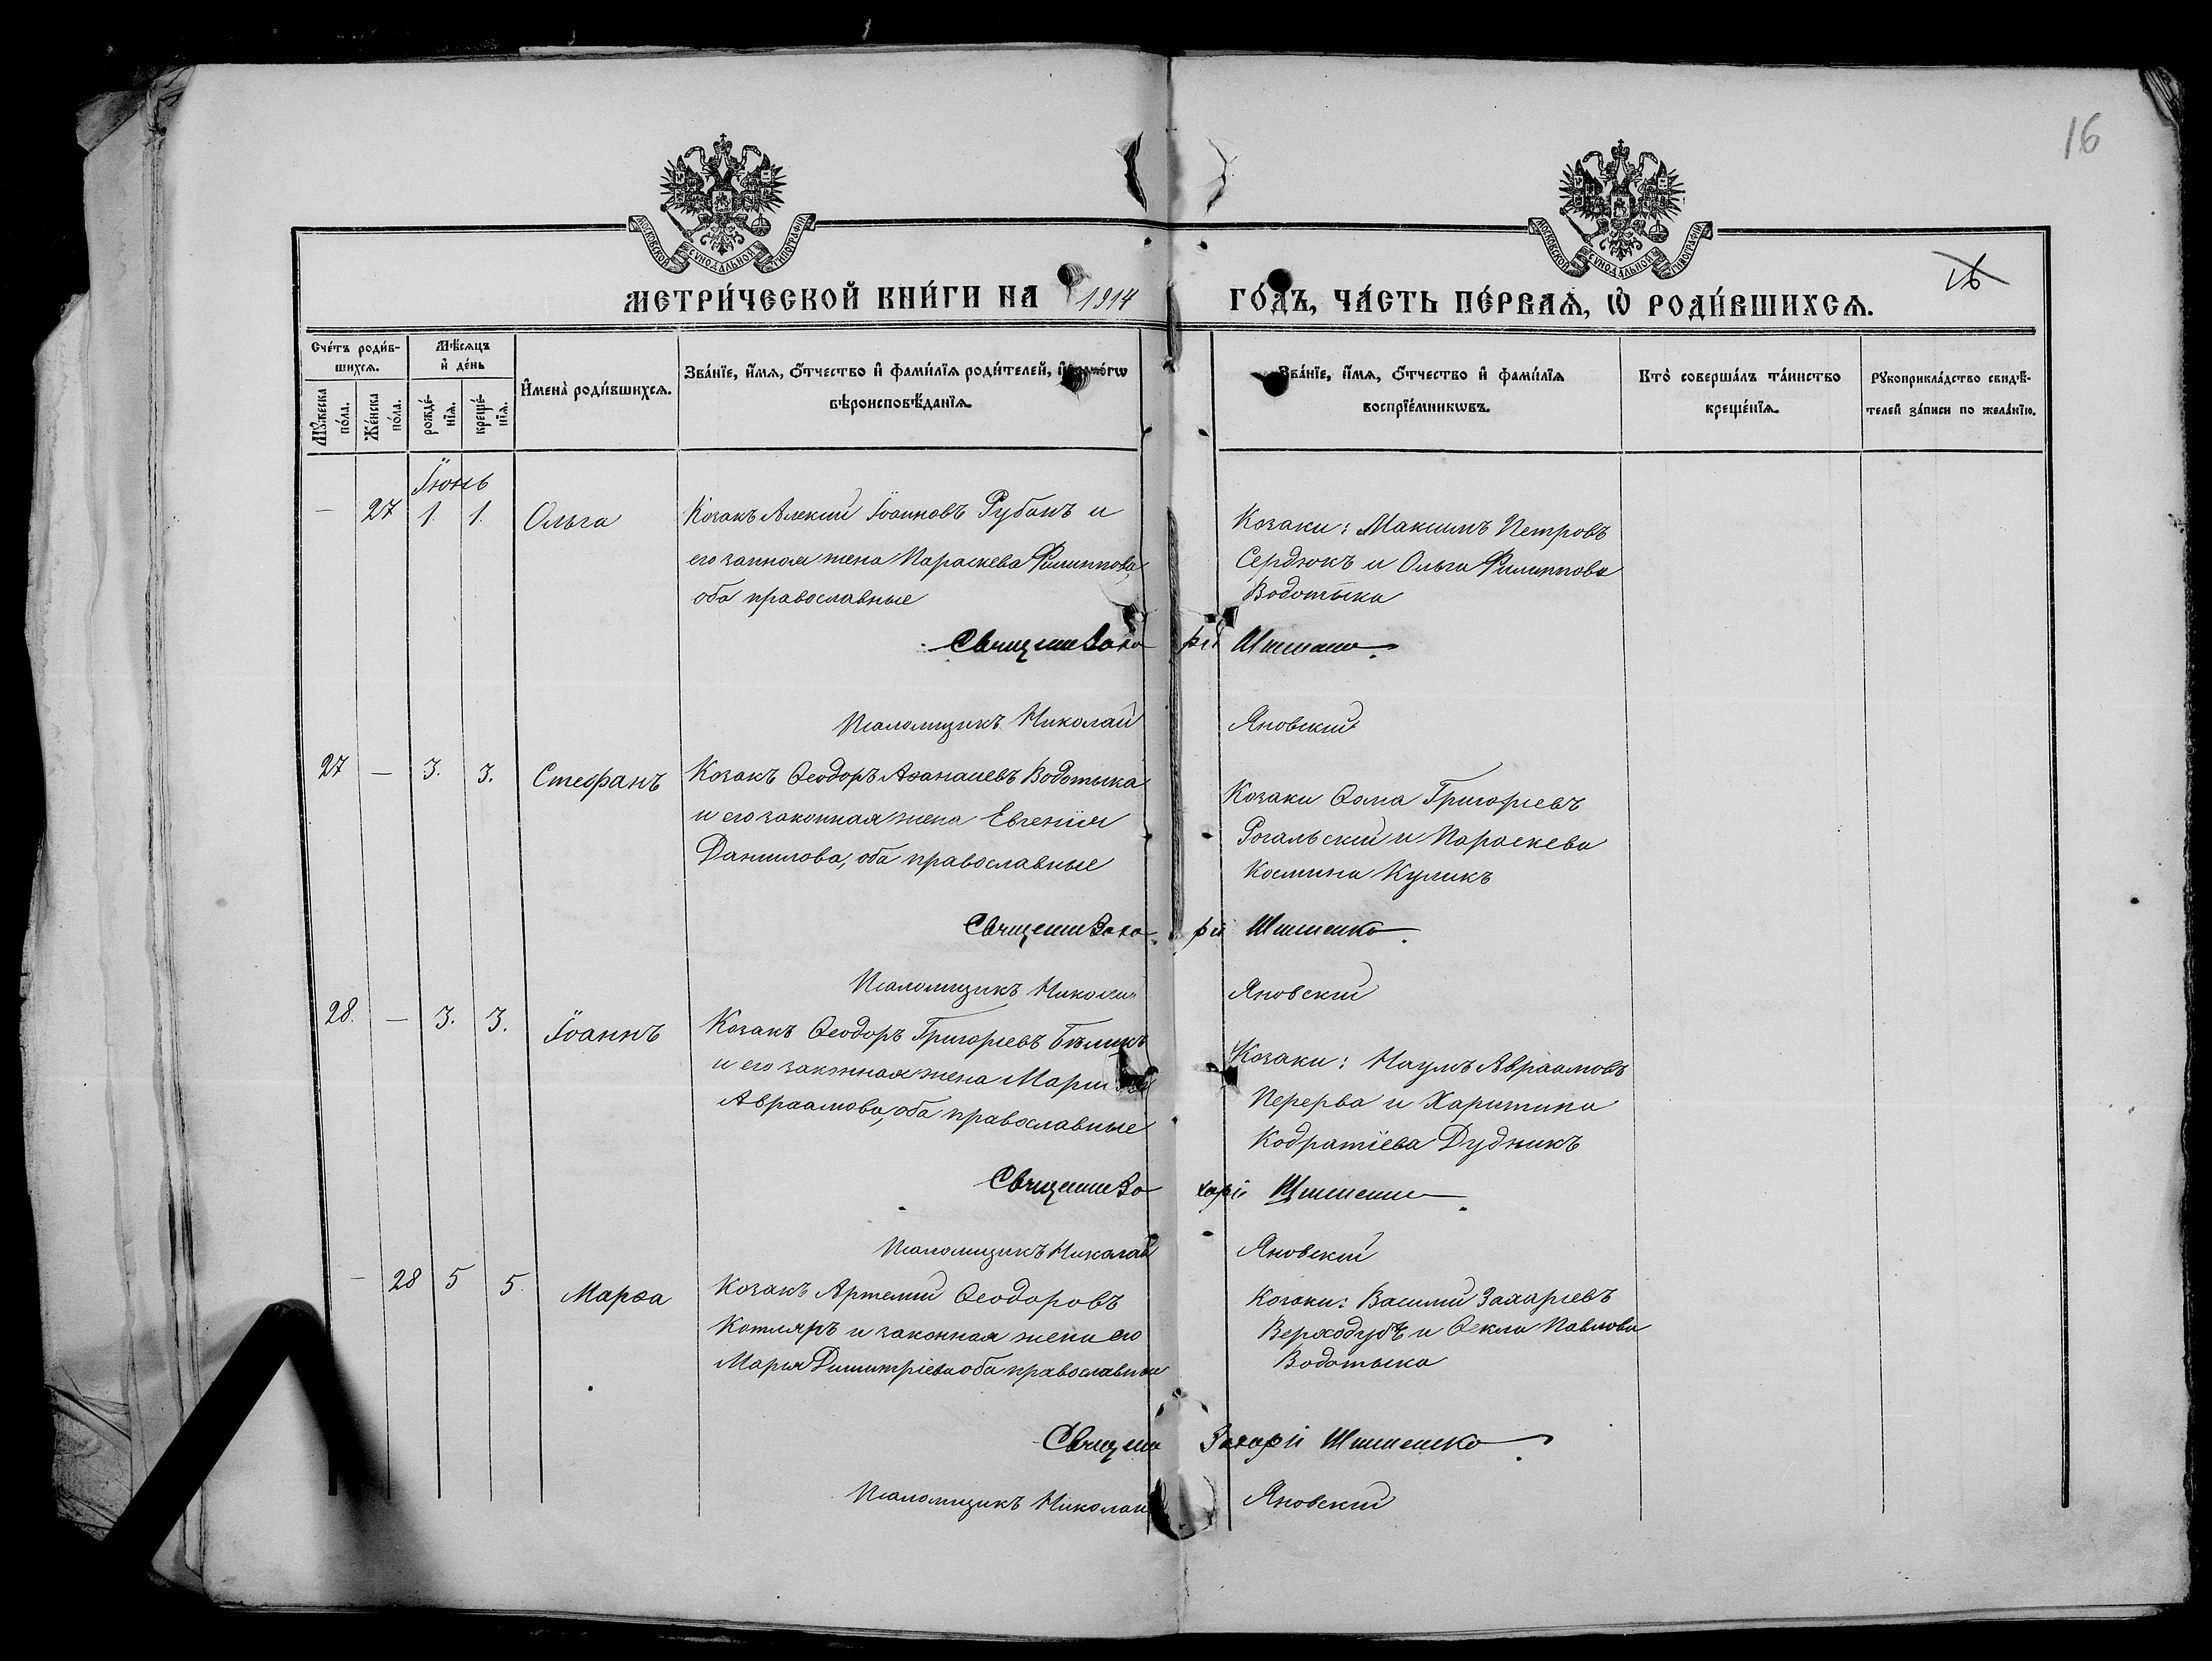 16
МОСКОВСКОЙ СѴНОДАЛЬНОЙ ТИПОГРАФІИ
МОСКОВСКОЙ СѴНОДАЛЬНОЙ ТИПОГРАФІИ
16
МЕТРИ́ЧЕСКОЙ КНИ́ГИ НА 1914 ГО́ДЪ, ЧА́СТЬ ПЕ́РВАѦ, Ѡ҆ РОДИ́ВШИХСѦ.
Сче́тъ роди́в-
шихсѧ.
Мꙋ́жеска
по́ла.
Же́нска
по́ла.
Мѣ́сѧцъ
и҆ де́нь
рожде́-
нїѧ.
креще́-
нїѧ.
И҆мена̀ роди́вшихсѧ.
Зва́нїе, и҆́мѧ, ѻ҆́тчество и҆ фами́лїѧ роди́телей, и҆
вѣроисповѣ́данїѧ.
Зва́нїе, и҆́мѧ, ѻ҆́тчество и҆ фами́лїѧ
воспрїе́мникѡвъ.
Кто̀ соверша́лъ та́инство
креще́нїѧ.
Рꙋкоприкла́дство свидѣ́-
телей за́писи по жела́нїю.
Іюнь
— 27 1. 1. Ольга
Козакъ Алексій Іоанновъ Рубанъ и
его законная жена Параскева Филиппова,
оба православные
Козаки: Максимъ Петровъ
Сердюкъ и Ольга Филиппова
Водотыка
Священ Захарій Шишенко
Псаломщикъ Николай Яновскій
27 — 3. 3. Стефанъ
Козакъ Ѳеодоръ Аѳанасіевъ Водотыка
и его законная жена Евгенія
Данилова, оба православные
Козаки Ѳома Григорьевъ
Рогальскій и Параскева
Космина Куликъ
Священ Захарій Шишенко
Псаломщикъ Николай Яновскій
28. — 3. 3. Іоаннъ
Козакъ Ѳеодоръ Григорьевъ Бѣликъ
и его законная жена Марія
Авраамова, оба православные
Козаки: Наумъ Авраамовъ
Перерва и Харитина
Кодратіева Дудникъ
Священ Захарій Шишенко
Псаломщикъ Николай Яновскій
— 28 5 5. Марѳа
Козакъ Артемій Ѳеодоровъ
Котляръ и законная жена его
Марія Димитріева оба православные
Козаки: Василій Захарьевъ
Верходубъ и Ѳекла Павлова
Водотыка
Священ Захарій Шишенко
Псаломщикъ Николай Яновскій